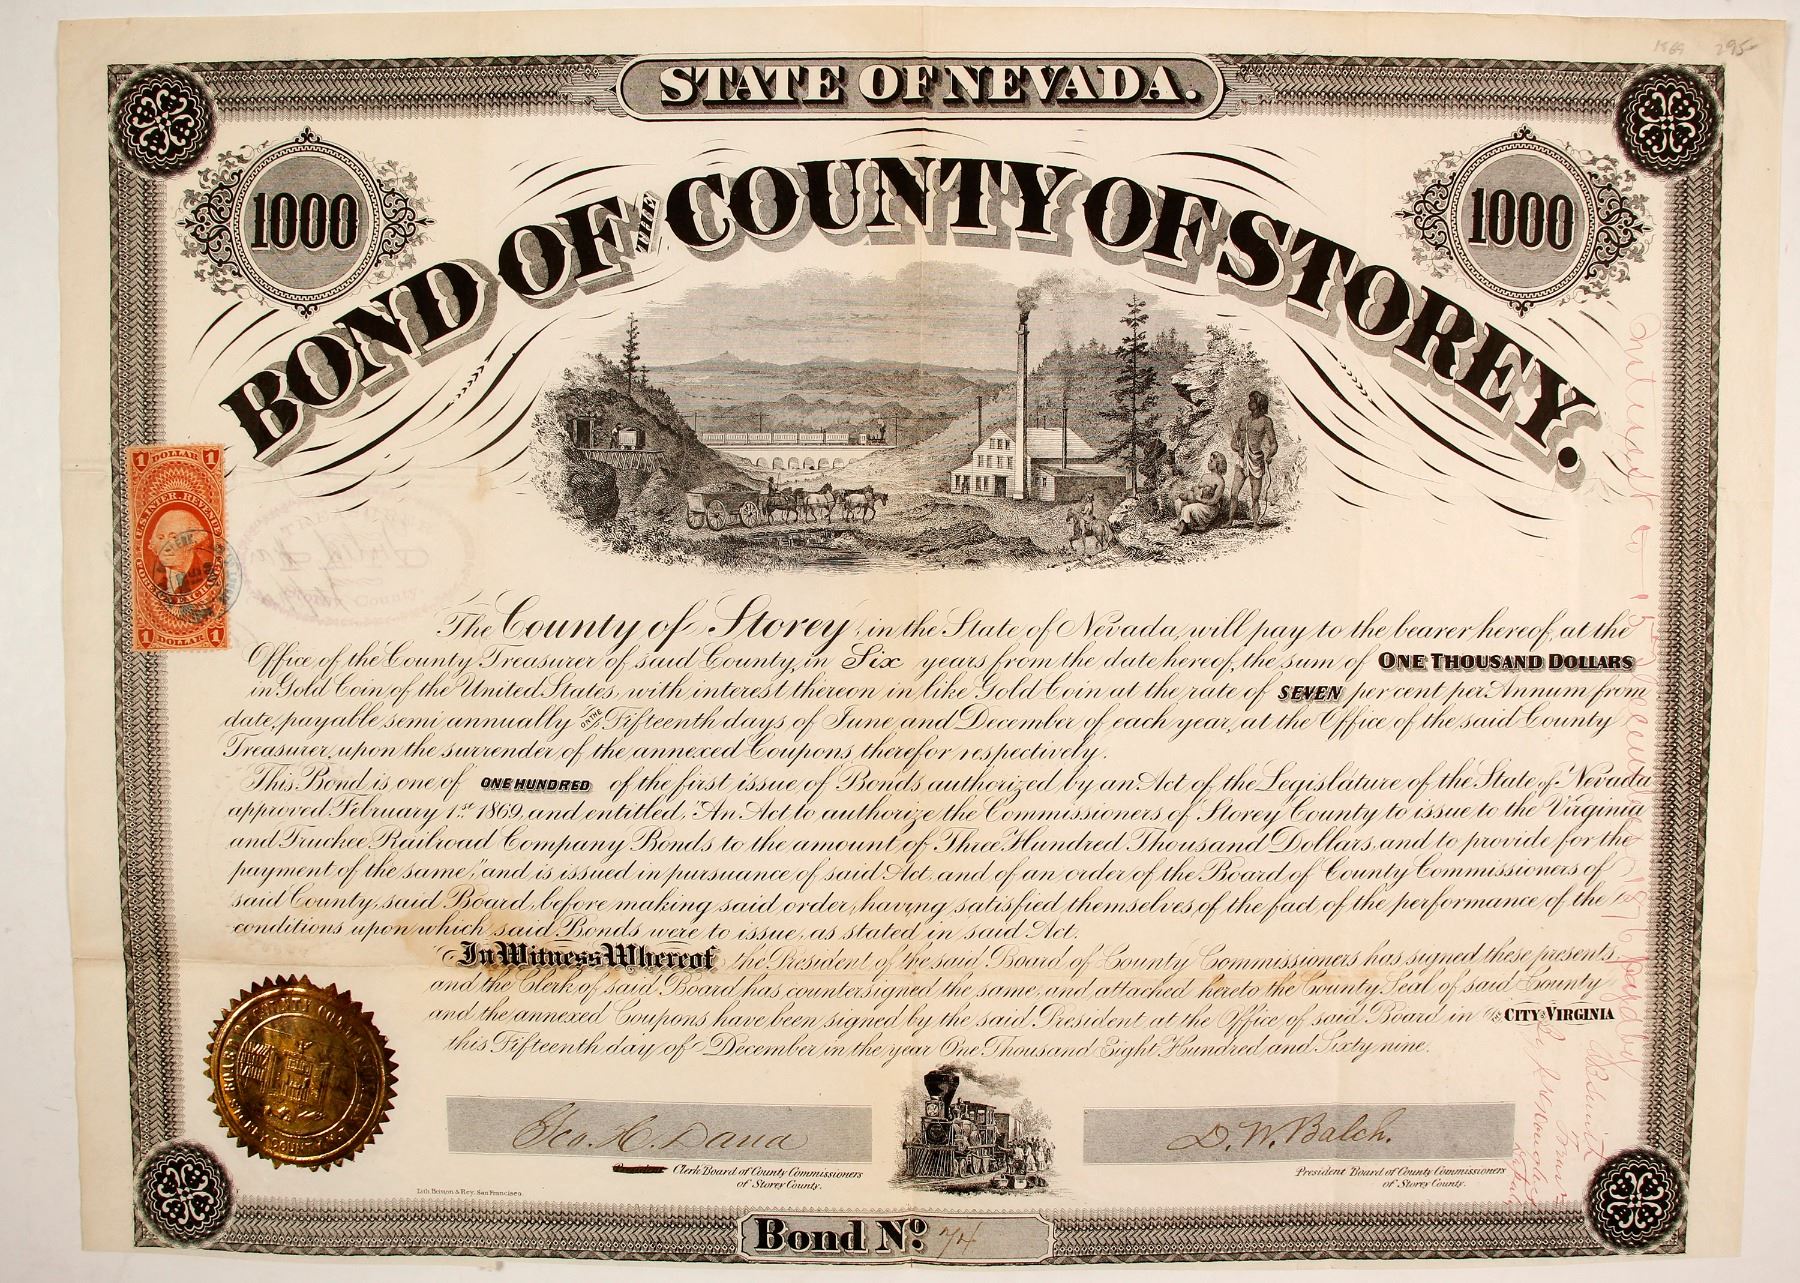 1869 295-
STATE OF NEVADA.
1000
1000
BOND OF THE COUNTY OF STOREY.
1 DOLLAR 1
U.S. INTER. REVENUE
FOREIGN EXCHANGE
1 DOLLAR 1
County.
The County of Storey, in the State of Nevada, will pay to the bearer hereof, at the
Office of the County Treasurer of said County, in Six years from the date hereof, the sum of ONE THOUSAND DOLLARS
in Gold Coin of the United States, with interest thereon in like Gold Coin at the rate of SEVEN per cent per Annum from
date, payable semi annually ON THE Fifteenth days of June and December of each year, at the Office of the said County
Treasurer, upon the surrender of the annexed Coupons therefor respectively.
This Bond is one of ONE HUNDRED of the first issue of Bonds authorized by an Act of the Legislature of the State of Nevada
approved February 1st 1869, and entitled, "An Act to authorize the Commissioners of Storey County to issue to the Virginia
and Truckee Railroad Company Bonds to the amount of Three Hundred Thousand Dollars, and to provide for the
payment of the same," and is issued in pursuance of said Act, and of an order of the Board of County Commissioners of
said County, said Board, before making said order, having satisfied themselves of the fact of the performance of the
conditions upon which said Bonds were to issue, as stated in said Act.
In Witness Whereof the President of the said Board of County Commissioners has signed these presents,
and the Clerk of said Board has countersigned the same, and attached hereto the County Seal of said County
and the annexed Coupons have been signed by the said President at the Office of said Board in the CITY OF VIRGINIA
this Fifteenth day of December in the year One Thousand Eight Hundred and Sixty nine.
Geo. H. Dana
D. W. Balch.
Clerk Board of County Commissioners
of Storey County.
President Board of County Commissioners
of Storey County.
Lith. Britton & Rey, San Francisco.
Bond No. 74
Interest to 15 December 1876 paid by